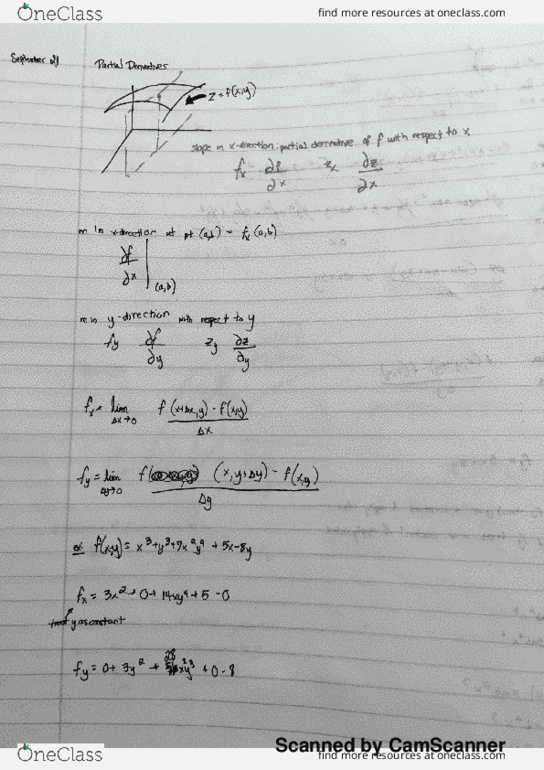 OneClass
find more resources at oneclass.com
September 21
Partial Derivatives
z = f(x,y)
slope in x-direction: partial derivative of f with respect to x
fx ∂f/∂x zx ∂z/∂x
m in x-direction at pt (a,b) = fx (a,b)
∂f/∂x |(a,b)
m in y-direction with respect to y
fy ∂f/∂y zy ∂z/∂y
fx = lim Δx→0 f(x+Δx,y) - f(x,y) / Δx
fy = lim Δy→0 f (x,y+Δy) - f(x,y) / Δy
ex: f(x,y) = x³+y³+7x²y⁴ + 5x-8y
fx = 3x² + 0 + 14xy⁴ + 5 - 0
treat y as constant
fy = 0 + 3y² + 28x²y³ + 0 - 8
Scanned by CamScanner
OneClass
find more resources at oneclass.com